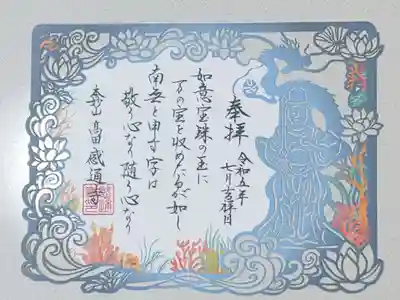 奉拝
令和五年
七月吉祥日
如意宝珠の玉に
万の宝を収めたるが如し
南無と申す字は
敬う心なり随う心なり
感通